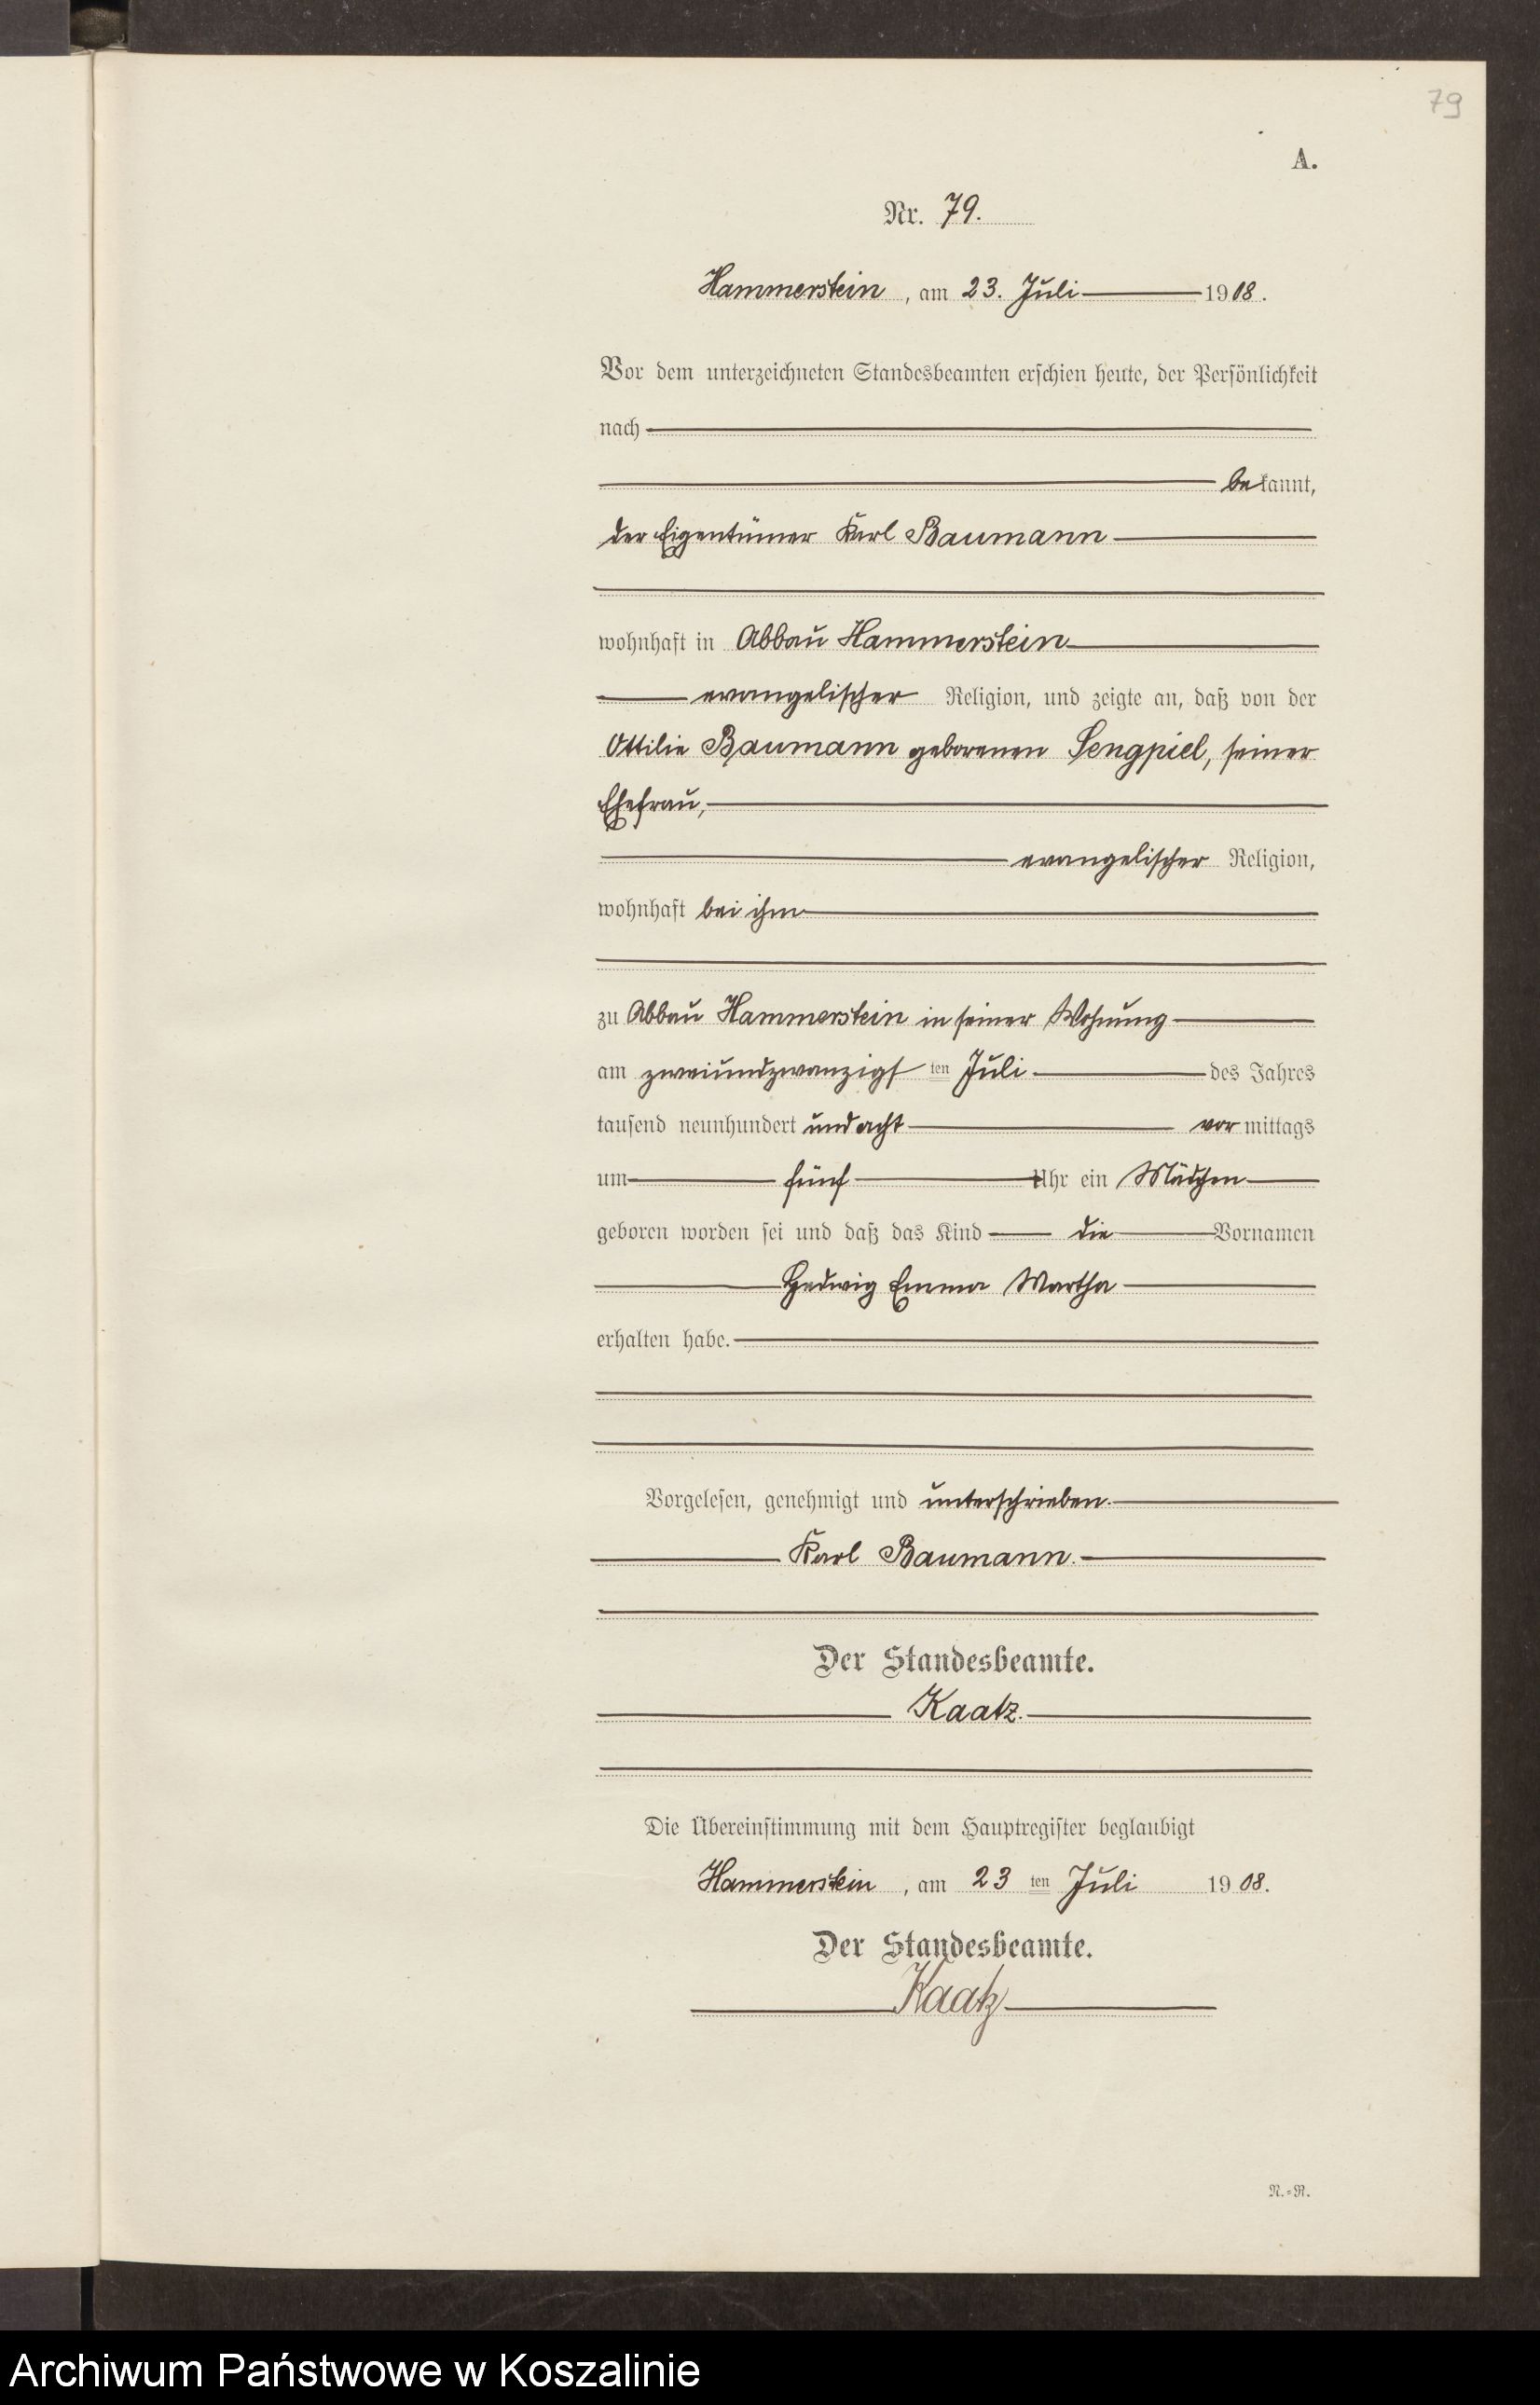 79
A.
Nr. 79.
Hammerstein, am 23. Juli 1908.
Vor dem unterzeichneten Standesbeamten erschien heute, der Persönlichkeit
nach
bekannt,
der Eigentümer Karl Baumann
wohnhaft in Abbau Hammerstein
evangelischer Religion, und zeigte an, daß von der
Ottilie Baumann geborenen Sengpiel, seiner
Ehefrau,
evangelischer Religion,
wohnhaft bei ihm
zu Abbau Hammerstein in seiner Wohnung
am zweiundzwanzigsten Juli des Jahres
tausend neunhundert und acht vormittags
um fünf Uhr ein Mädchen
geboren worden sei und daß das Kind die Vornamen
Hedwig Emma Martha
erhalten habe.
Vorgelesen, genehmigt und unterschrieben.
Karl Baumann.
Der Standesbeamte.
Kaatz.
Die Übereinstimmung mit dem Hauptregister beglaubigt
Hammerstein, am 23ten Juli 1908.
Der Standesbeamte.
Kaatz
N.-R.
Archiwum Państwowe w Koszalinie